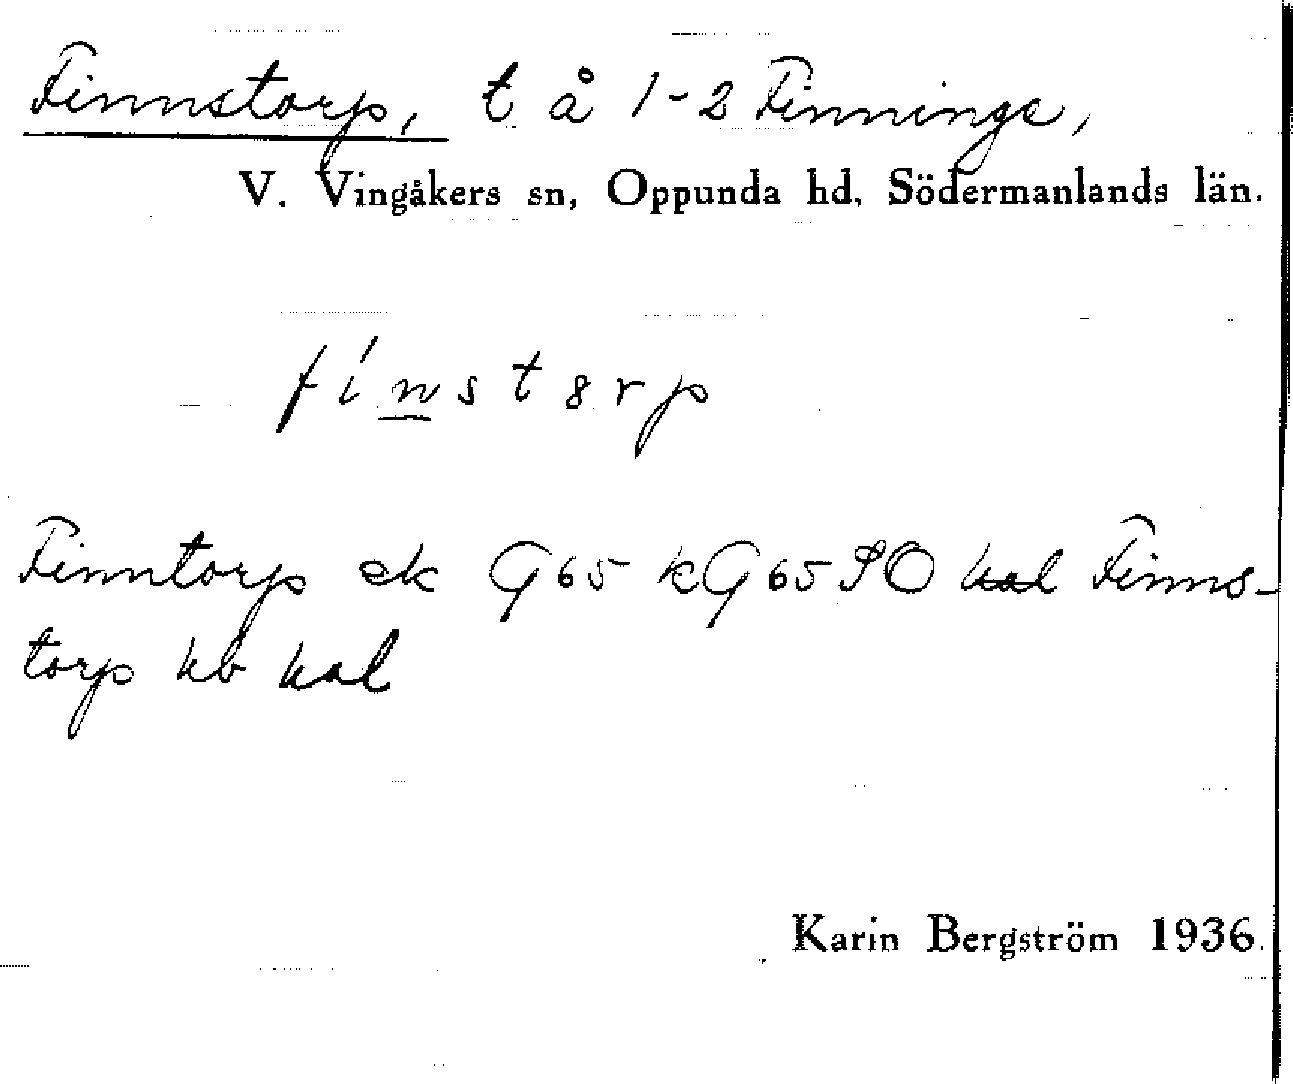 Finnstorp, t å 1-2 Finninge,
V. Vingåkers sn, Oppunda hd, Södermanlands län.
fínstorp
Finntorp ek G65 kG65 SO hal Finns-
torp hb hal
Karin Bergström 1936.